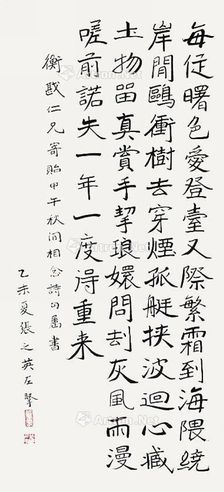 每從曙色愛登臺又際繁霜到海隈繞
岸間鷗衝樹去穿煙孤艇挾波迴心藏
土物留真賞手挈琅嬛問刦灰風雨漫
嗟前諾失一年一度得重来
衡戡仁兄寄貽甲午秋間相念詩書
乙未夏張之英左